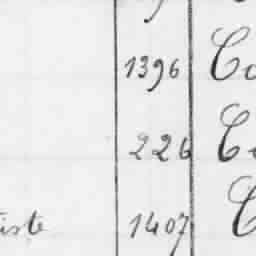 1396 Co
226 C
iste 1407 C